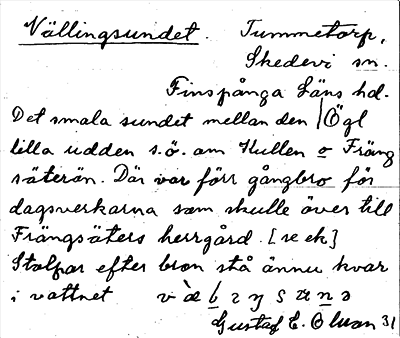 Vällingsundet. Tummetorp,
Skedevi sn.
Finspånga Läns hd.
Det smala sundet mellan den Ögl
lilla udden s.ö. om Kullen o Fräng
säterän. Där var förr gångbro för
dagsverkarna som skulle över till
Frängsäters herrgård. [se ek]
Stolpar efter bron stå ännu kvar
i vattnet
Gustaf E. Olson 31